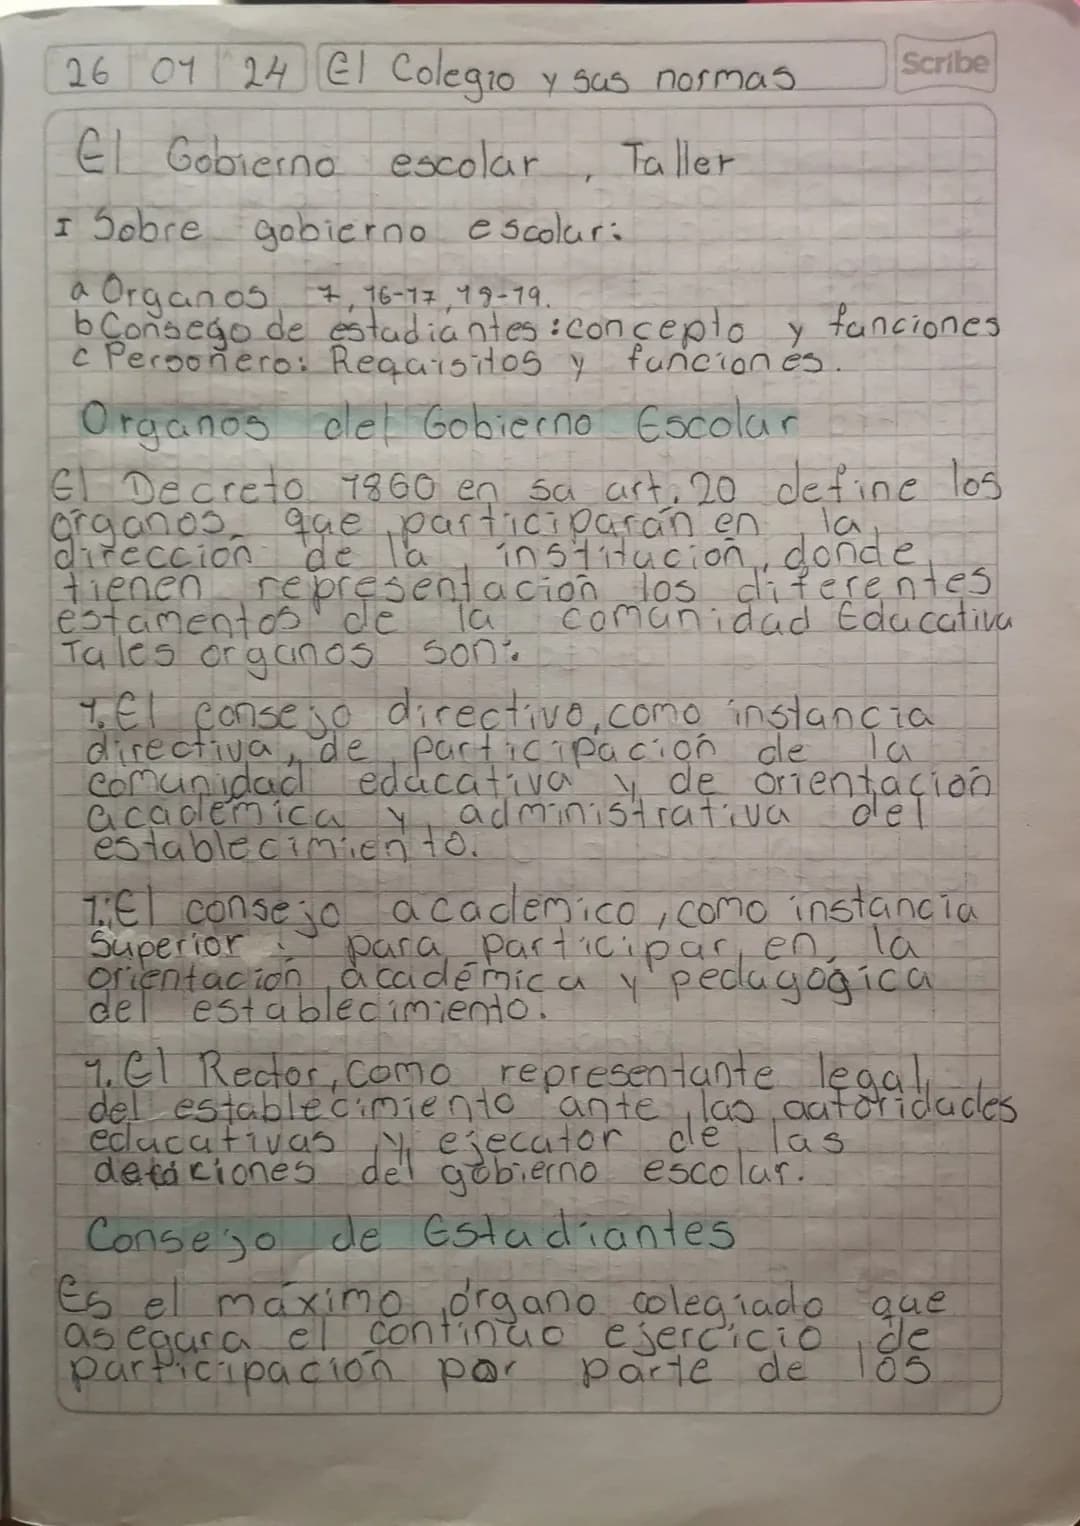 26 01 24 El Colegio y sus normas
Scribe
El Gobierno escolar, Taller
I Sobre gobierno escolar:
a Organos 7, 16-17, 19-19.
b Consego de estudiantes: concepto y funciones
c Personero: Requisitos y funciones.
Organos del Gobierno Escolar
El Decreto 1860 en su art. 20 define los
órganos que participarán en la
dirección de la institución, donde
tienen representación los diferentes
estamentos de la comunidad Educativa
Tales organos son:
1. El consejo directivo, como instancia
directiva, de participación de la
comunidad educativa y de orientación
académica y administrativa del
establecimiento.
1. El consejo academico, como instancia
Superior para participar en la
orientación académica y pedagógica
del establecimiento.
1. El Rector, como representante legal
del establecimiento ante las autoridades
educativas y ejecutor de las
del gobierno escolar.
Consejo de Estudiantes
Es el máximo órgano colegiado que
asegura el continuo ejercicio de
participación por parte de los